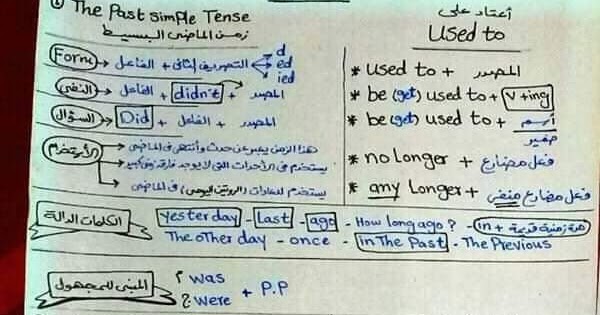 ① The Past simple Tense
زمن الماضى البسيط
Form الفاعل + التصريف الثانى d
ed
ied
النفى الفاعل + didn't + المصدر
السؤال Did + الفاعل + المصدر
الأستخدام هذا الزمن يعبر عن حدث وأنتهى فى الماضى
يستخدم فى الأحداث التى لا يوجد فارق زمنى كبير
يستخدم للعادات (الروتين اليومى) فى الماضى
أعتاد على
Used to
* used to + المصدر
* be (get) used to + v+ing
* be (get) used to + أسم
ضمير
* no longer + فعل مضارع
* any Longer + فعل مضارع منفى
الكلمات الدالة yesterday - Last - ago - How long ago? - in + سنة زمنية قديمة
The other day - once - in The Past - The Previous
المبنى للمجهول was
were + P.P